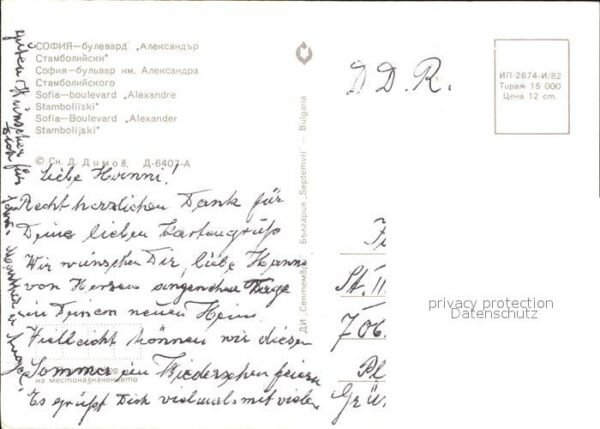 СОФИЯ—булевард „Александър
Стамболийски"
София—бульвар им. Александра
Стамболийского
Sofia—boulevard „Alexandre
Stamboliiski"
Sofia—Boulevard „Alexander
Stambolijski"
© Сн. Д. Димов, Д-6402-А
Liebe Hanni!
Recht herzlichen Dank für
Deine lieben Kartengruß
Wir wünschen Dir, liebe Hanni
von Herzen angenehme Tage
in Deinem neuen Heim.
Vielleicht können wir diesen
Sommer ein Wiedersehen feiern
Es grüßt Dich vielmals mit vielen
guten Wünschen für
Dich
на местоназначението
ДИ „Септември" България „Septemvri" — Bulgaria
D.D.R.
ИП-2674-И/82
Тираж 15 000
Цена 12 cm.
St.
706
Pl
Grü
privacy protection
Datenschutz